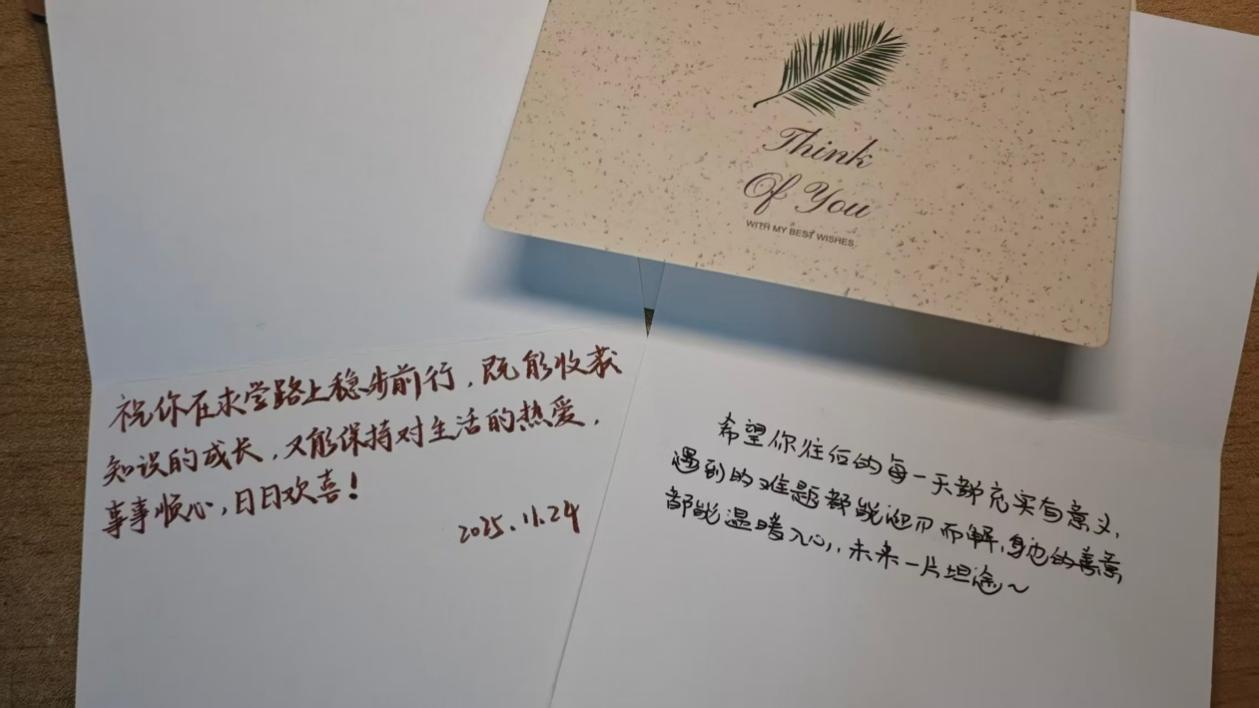 Think
Of You
WITH MY BEST WISHES
祝你在求学路上稳步前行，既能收获
知识的成长，又能保持对生活的热爱，
事事顺心，日日欢喜！
2025.11.24
希望你往后的每一天都充实有意义，
遇到的难题都能迎刃而解，身边的善意
都能温暖入心，未来一片坦途～